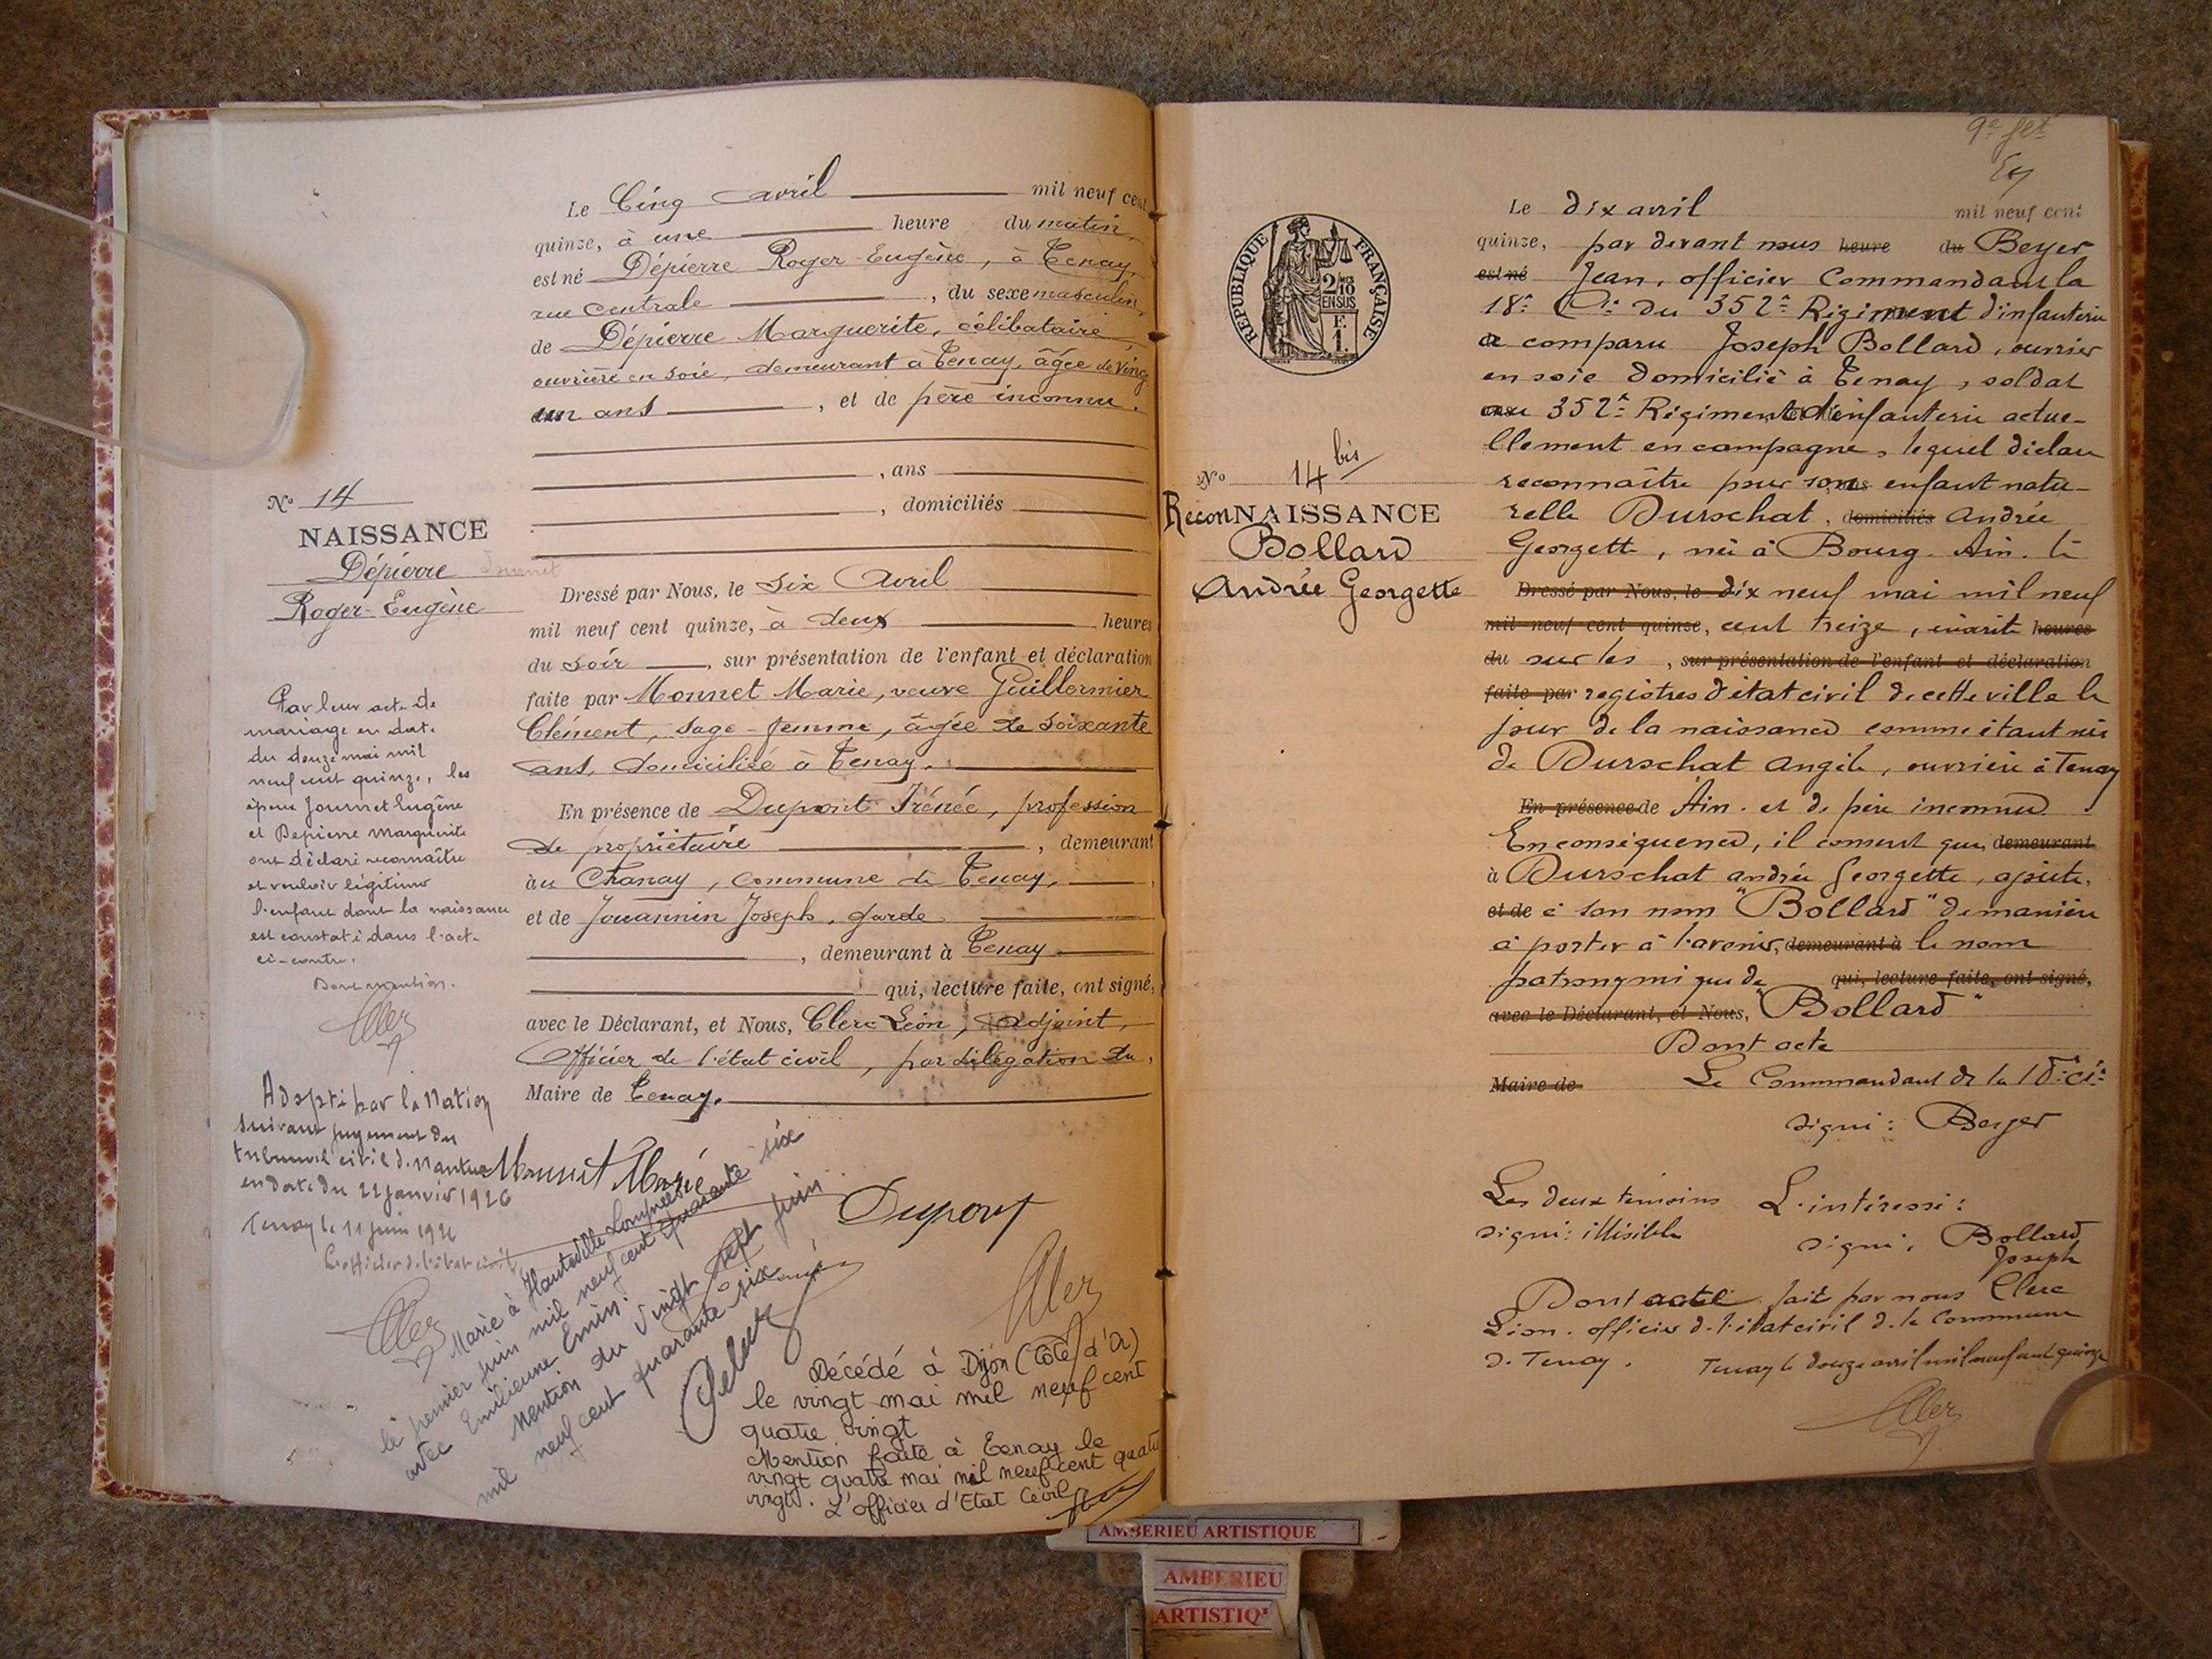 Le Cinq avril mil neuf cent
quinze, à une heure du matin,
est né Dépierre Roger-Eugène, à Tenay,
rue centrale, du sexe masculin,
de Dépierre Marguerite, célibataire,
ouvrière en soie, demeurant à Tenay, âgée de Vingt
un ans, et de père inconnu.
, ans
, domiciliés
N° 14
NAISSANCE
Dépierre
Roger-Eugène
Dressé par Nous, le six Avril
mil neuf cent quinze, à deux heures
du soir, sur présentation de l'enfant et déclaration
faite par Monnet Marie, veuve Guillermier
Clément, sage-femme, âgée de soixante
ans, domiciliée à Tenay.
En présence de Dupont Irénée, profession
de propriétaire, demeurant
au Chanay, commune de Tenay,
et de Jouannin Joseph, garde
, demeurant à Tenay
qui, lecture faite, ont signé,
avec le Déclarant, et Nous, Clerc Léon, adjoint,
Officier de l'état civil, par délégation du
Maire de Tenay.
Par leur acte de
mariage en date
du douze mai mil
neuf cent quinze, les
époux Journet Eugène
et Depierre Marguerite
ont déclaré reconnaître
et vouloir légitimer
l'enfant dont la naissance
est constatée dans l'acte
ci-contre.
Dont mention.
Clerc
Adopté par la Nation
suivant jugement du
tribunal civil de Nantua
en date du 22 janvier 1926
Tenay le 11 juin 1926
L'officier de l'état civil
Clerc
Monnet Marie
Dupont
Clerc
Marié à Hauteville-Lompnes
le premier juin mil neuf cent quarante six
avec Emilienne Emin.
Mention du vingt sept juin
mil neuf cent quarante six
Décédé à Dijon (Côte d'Or)
le vingt mai mil neuf cent
quatre vingt
Mention faite à Tenay le
vingt quatre mai mil neuf cent quatre
vingt. L'officier d'Etat Civil
9e fet
REPUBLIQUE FRANÇAISE
2/10
EN SUS
F.
1.
N° 14 bis
ReconNAISSANCE
Bollard
Andrée Georgette
Le dix avril mil neuf cent
quinze, par devant nous heure du Beyer
est né Jean, officier Commandant la
18e Cie du 352e Régiment d'infanterie
a comparu Joseph Bollard, ouvrier
en soie domicilié à Tenay, soldat
au 352e Régiment d'infanterie actue-
llement en campagne, lequel déclare
reconnaître pour son enfant natu-
relle Durschat, domiciliés Andrée
Georgette, née à Bourg. Ain. le
Dressé par Nous, le dix neuf mai mil neuf
mil neuf cent quinze, cent treize, inscrite heures
du sur les, sur présentation de l'enfant et déclaration
faite par registres d'état civil de cette ville le
jour de la naissance comme étant née
de Durschat Angèle, ouvrière à Tenay
En présence de Ain. et de père inconnu.
En conséquence, il consent que demeurant
à Durschat andrée Georgette, ajoute,
et de à son nom "Bollard" de manière
à porter à l'avenir, demeurant à le nom
patronymique de qui, lecture faite, ont signé,
avec le Déclarant, et Nous, "Bollard"
Dont acte
Maire de Le Commandant de la 18e Cie
signé: Beyer
Les deux témoins
signé: illisible
L'intéressé:
signé: Bollard
Joseph
Dont acte fait par nous Clerc
Léon. officier de l'état civil de la Commune
de Tenay. Tenay le douze avril mil neuf cent quinze
Clerc
AMBERIEU ARTISTIQUE
AMBERIEU
ARTISTIQ